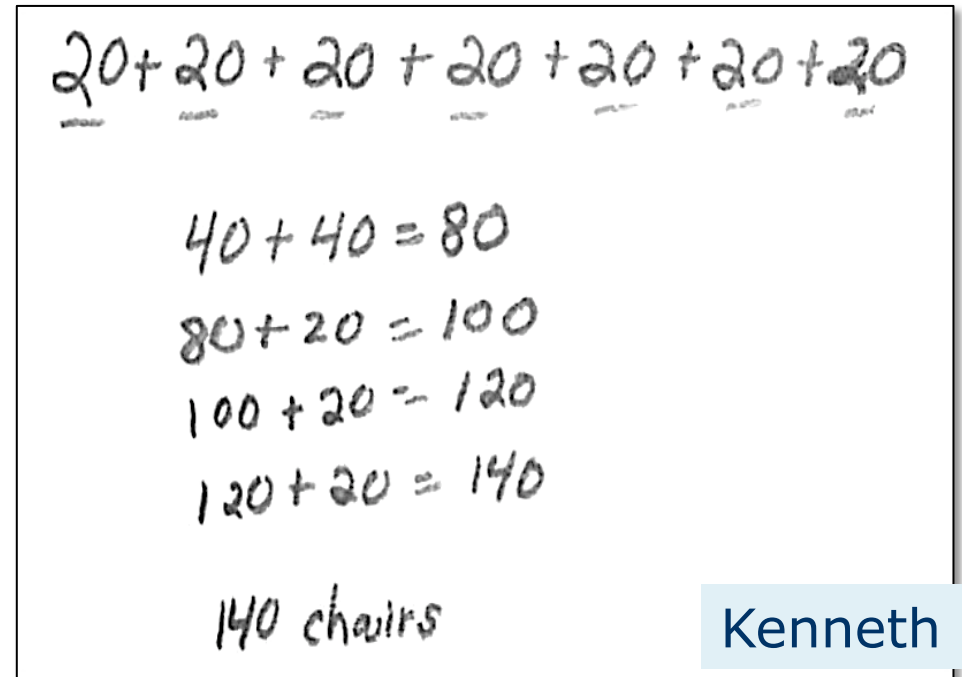 20+20+20+20+20+20+20
40+40=80
80+20=100
100+20=120
120+20=140
140 chairs
Kenneth